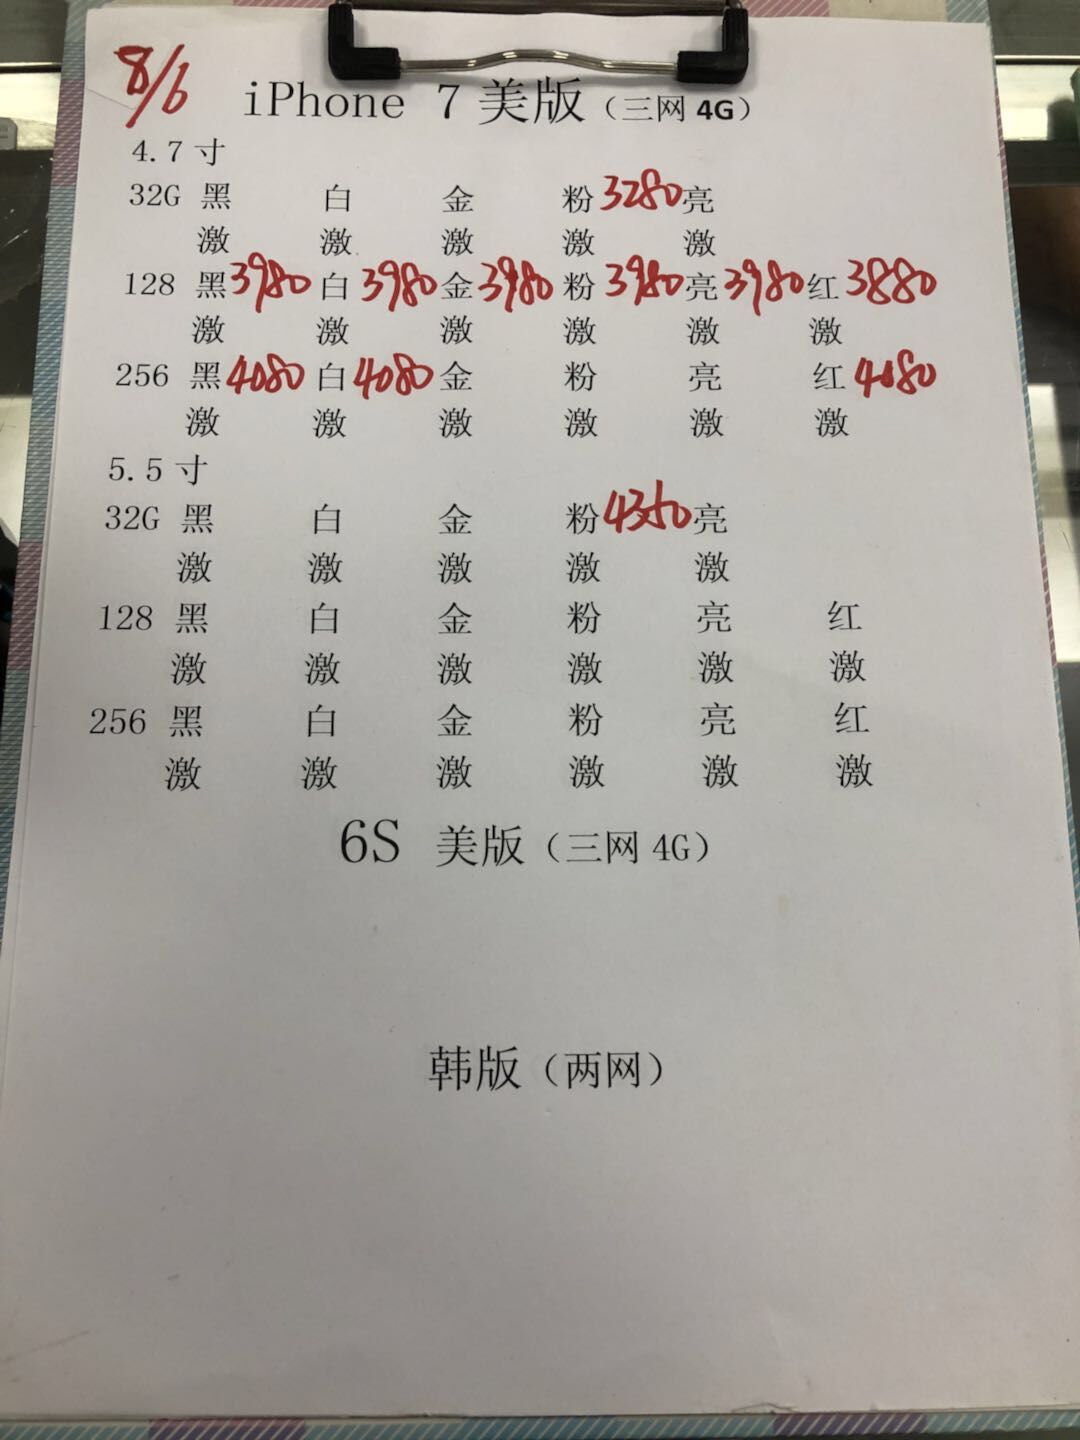 8/6
iPhone 7美版（三网4G）
4.7寸
32G 黑 白 金 粉 3280 亮
激 激 激 激 激
128 黑 3980 白 3980 金 3980 粉 3980 亮 3980 红 3880
激 激 激 激 激 激
256 黑 4080 白 4080 金 粉 亮 红 4080
激 激 激 激 激 激
5.5寸
32G 黑 白 金 粉 4350 亮
激 激 激 激 激
128 黑 白 金 粉 亮 红
激 激 激 激 激 激
256 黑 白 金 粉 亮 红
激 激 激 激 激 激
6S 美版（三网4G）
韩版（两网）